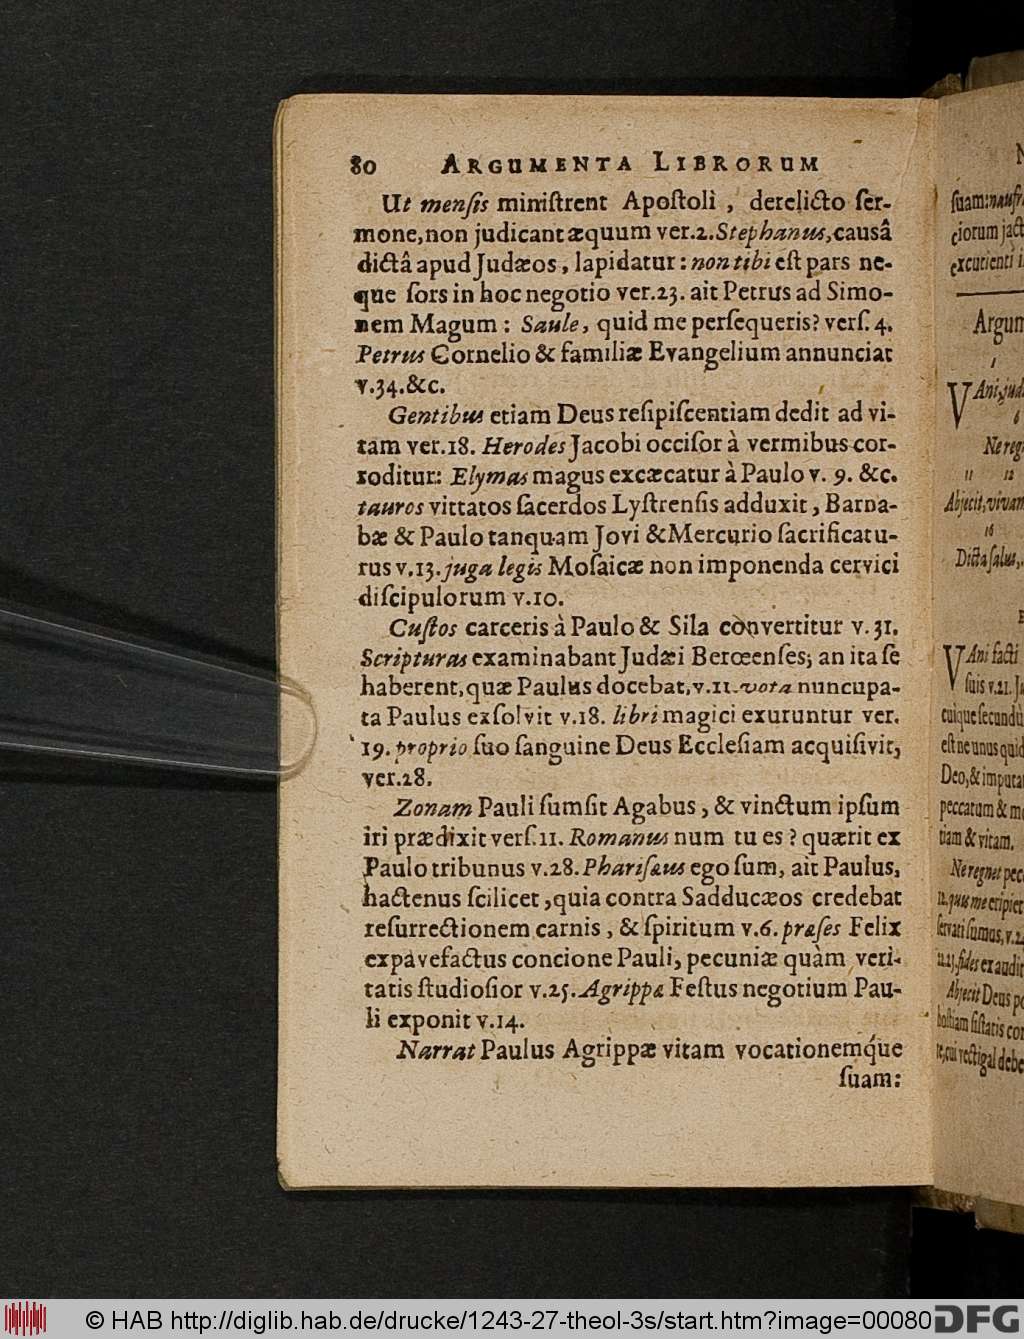 80 ARGUMENTA LIBRORUM
Ut mensis miniſtrent Apoſtoli, derelicto ſer-
mone, non judicant æquum ver. 2. Stephanus, causâ
dictâ apud Judæos, lapidatur: non tibi eſt pars ne-
que ſors in hoc negotio ver. 23. ait Petrus ad Simo-
nem Magum: Saule, quid me perſequeris? verſ. 4.
Petrus Cornelio & familiæ Evangelium annunciat
v. 34. &c.
Gentibus etiam Deus reſipiſcentiam dedit ad vi-
tam ver. 18. Herodes Jacobi occiſor à vermibus cor-
roditur: Elymas magus excæcatur à Paulo v. 9. &c.
tauros vittatos ſacerdos Lyſtrenſis adduxit, Barna-
bæ & Paulo tanquam Jovi & Mercurio ſacrificatu-
rus v. 13. juga legis Moſaicæ non imponenda cervici
diſcipulorum v. 10.
Cuſtos carceris à Paulo & Sila convertitur v. 31.
Scripturas examinabant Judæi Berœenſes; an ita ſe
haberent, quæ Paulus docebat, v. 11. vota nuncupa-
ta Paulus exſolvit v. 18. libri magici exuruntur ver.
19. proprio ſuo ſanguine Deus Eccleſiam acquiſivit,
ver. 28.
Zonam Pauli ſumſit Agabus, & vinctum ipſum
iri prædixit verſ. 11. Romanus num tu es? quærit ex
Paulo tribunus v. 28. Phariſæus ego ſum, ait Paulus,
hactenus ſcilicet, quia contra Sadducæos credebat
reſurrectionem carnis, & ſpiritum v. 6. præſes Felix
expavefactus concione Pauli, pecuniæ quàm veri-
tatis ſtudioſior v. 25. Agrippæ Feſtus negotium Pau-
li exponit v. 14.
Narrat Paulus Agrippæ vitam vocationemque
ſuam:
ſuam: naufr
ciorum jact
excutienti i
Argum
1
VAni, jud
6
Ne reg
11 12
Abjecit, vivam
16
Dicta ſalus,
VAni facti
ſuis v. 21. Ju
cuique ſecundù
eſt ne unus quid
Deo, & imputa
peccatum & mo
tiam & vitam.
Ne regnet pecc
12. quis me eripiet
ſervati ſumus, v. 24
fides ex audit
Abjecit Deus po
hoſtiam ſiſtatis cor
te, cui vectigal debe
© HAB http://diglib.hab.de/drucke/1243-27-theol-3s/start.htm?image=00080 DFG